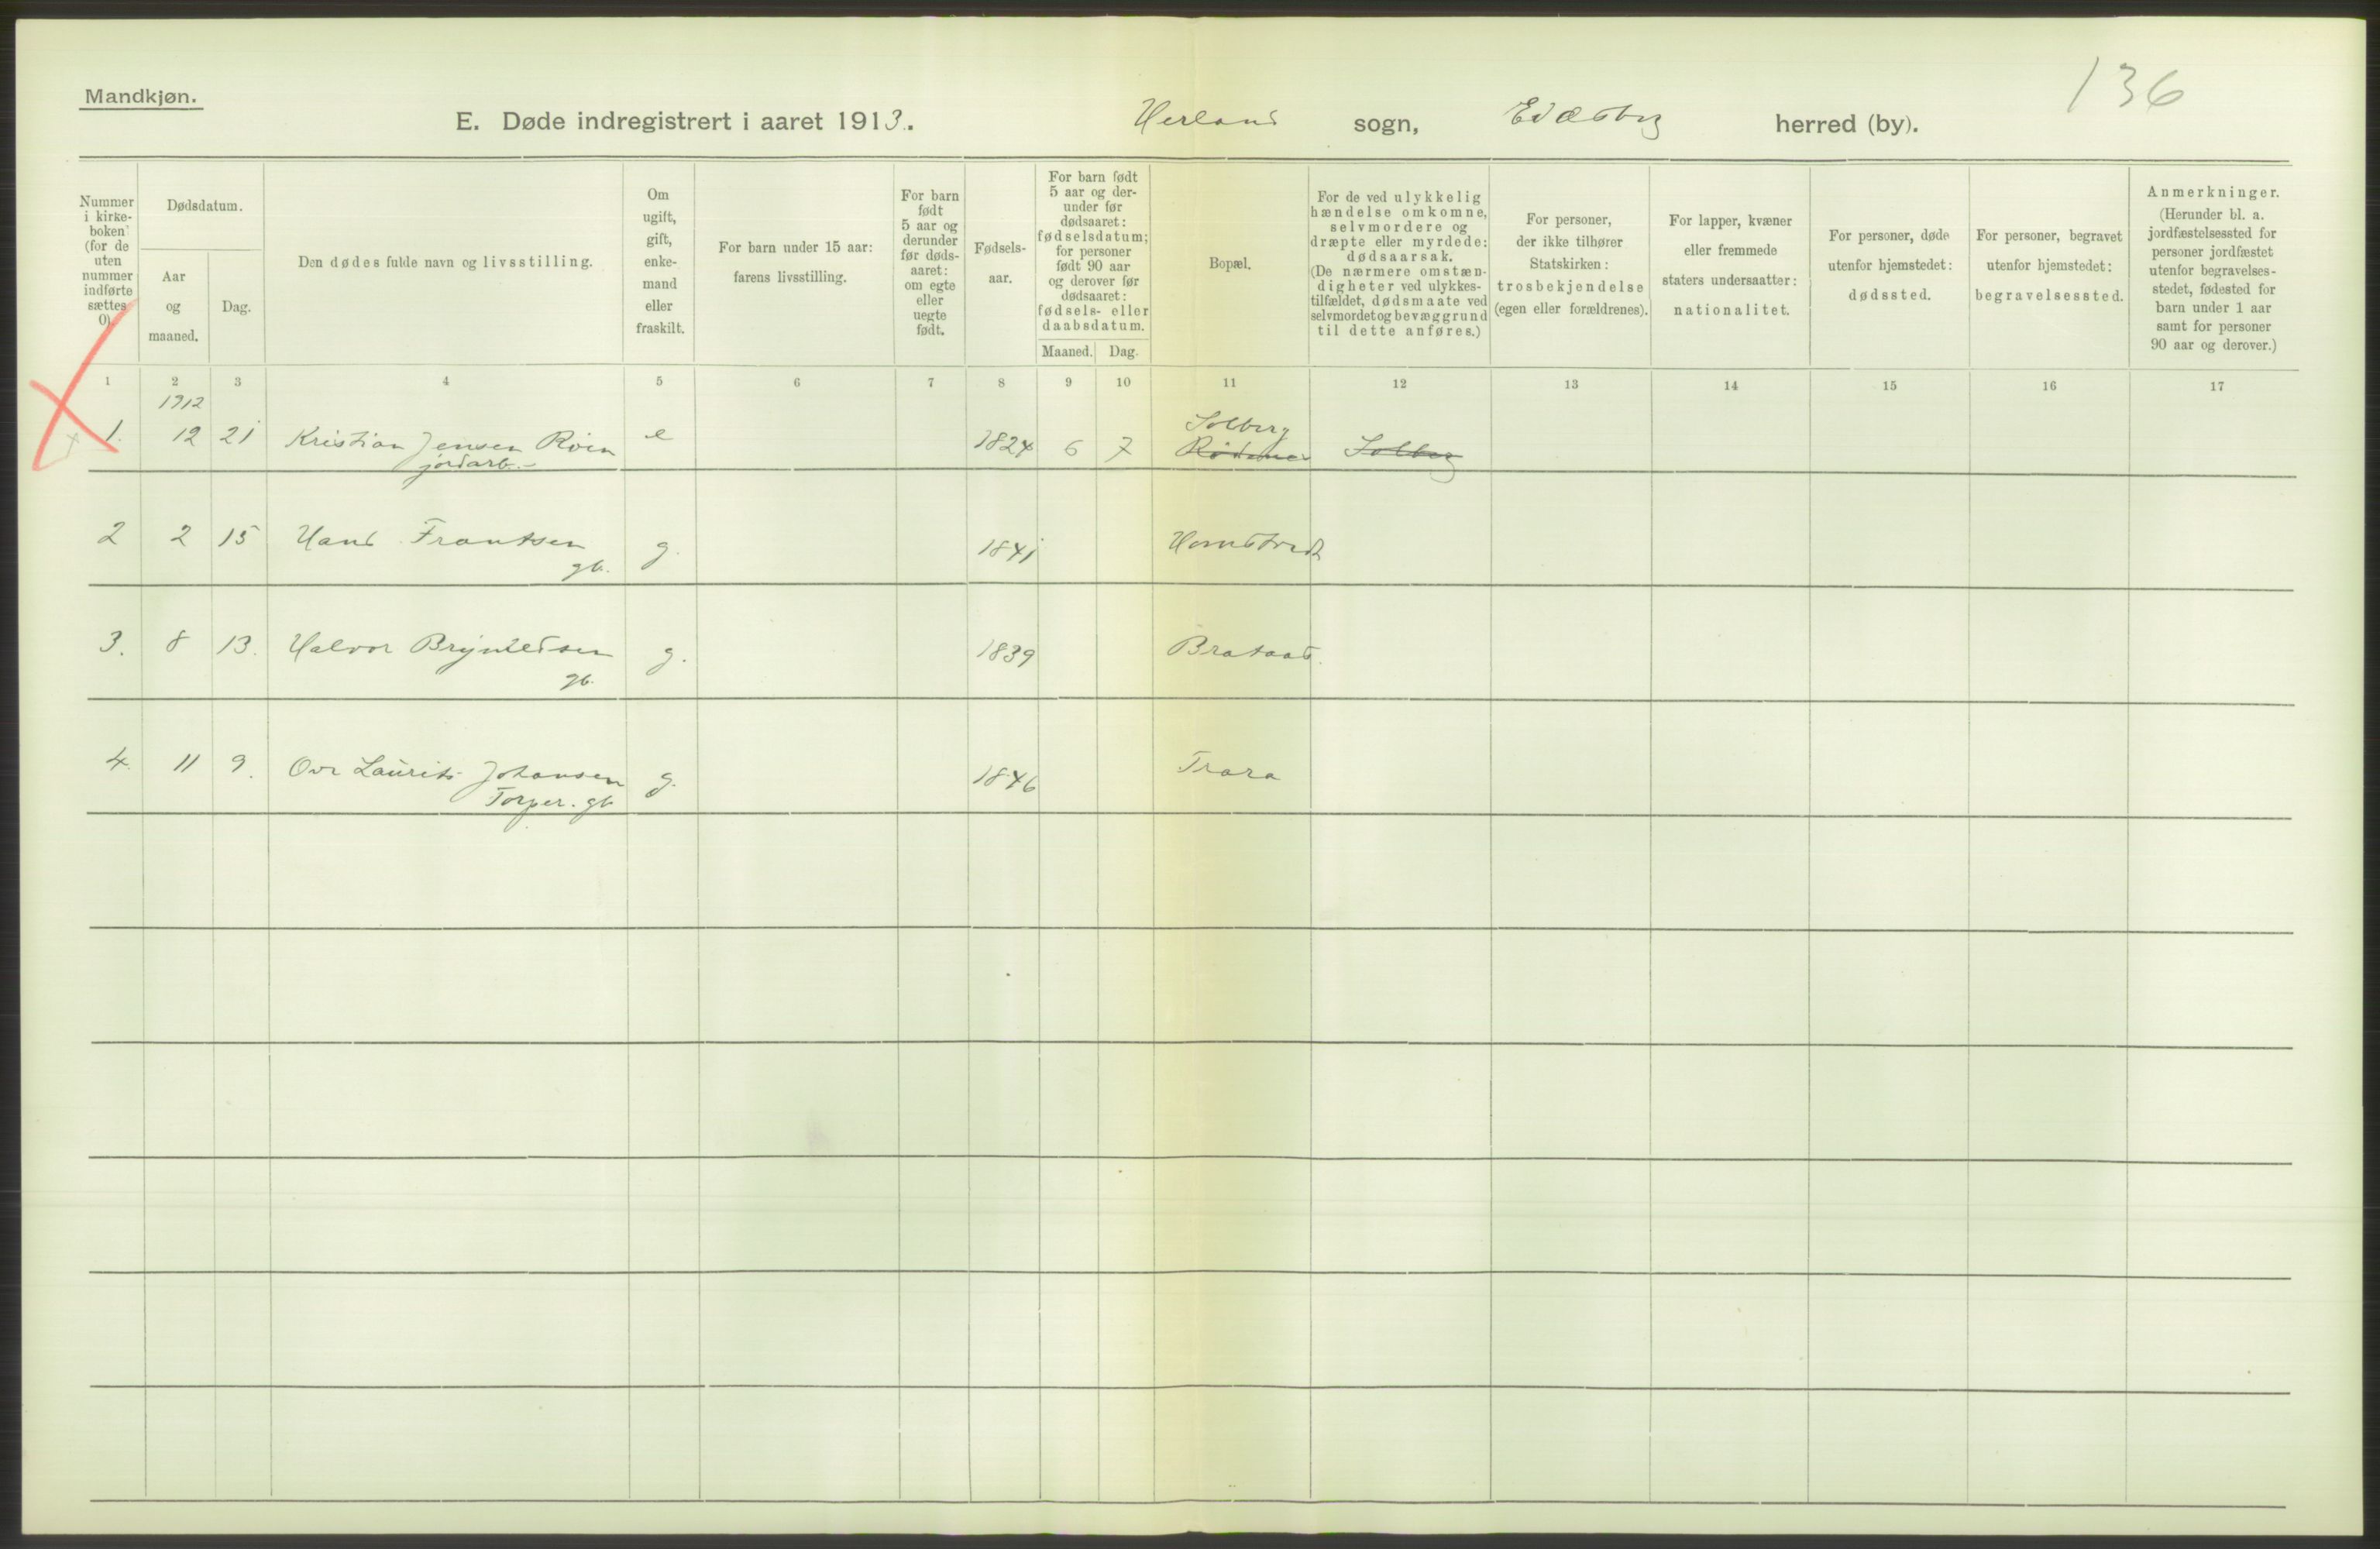 136
Mandkjøn.
E. Døde indregistrert i aaret 1913. Herland sogn, Eidsberg herred (by).
Nummer i kirkeboken (for de uten nummer indførte sættes 0).
Dødsdatum.
Aar og maaned.
Dag.
Den dødes fulde navn og livsstilling.
Om ugift, gift, enkemand eller fraskilt.
For barn under 15 aar: farens livsstilling.
For barn født 5 aar og derunder før dødsaaret: om egte eller uegte født.
Fødselsaar.
For barn født 5 aar og derunder før dødsaaret: fødselsdatum; for personer født 90 aar og derover før dødsaaret: fødsels- eller daabsdatum.
Maaned. Dag.
Bopæl.
For de ved ulykkelig hændelse omkomne, selvmordere og dræpte eller myrdede: dødsaarsak. (De nærmere omstændigheter ved ulykkestilfældet, dødsmaate ved selvmordet og bevæggrund til dette anføres.)
For personer, der ikke tilhører Statskirken: trosbekjendelse (egen eller forældrenes).
For lapper, kvæner eller fremmede staters undersaatter: nationalitet.
For personer, døde utenfor hjemstedet: dødssted.
For personer, begravet utenfor hjemstedet: begravelsessted.
Anmerkninger. (Herunder bl. a. jordfæstelsessted for personer jordfæstet utenfor begravelsesstedet, fødested for barn under 1 aar samt for personer 90 aar og derover.)
1 2 3 4 5 6 7 8 9 10 11 12 13 14 15 16 17
1912
Solberg
1. 12 21 Kristian Jensen Roen e 1824 6 7 Solberg
jordarb.
2 2 15 Hans Frantsen g. 1841
gb.
3. 8 13. Halvor Bryntedsen g. 1839 Brataas.
gb.
4. 11 9. Ove Laurits Johansen g. 1846 Trara
Torper. gb